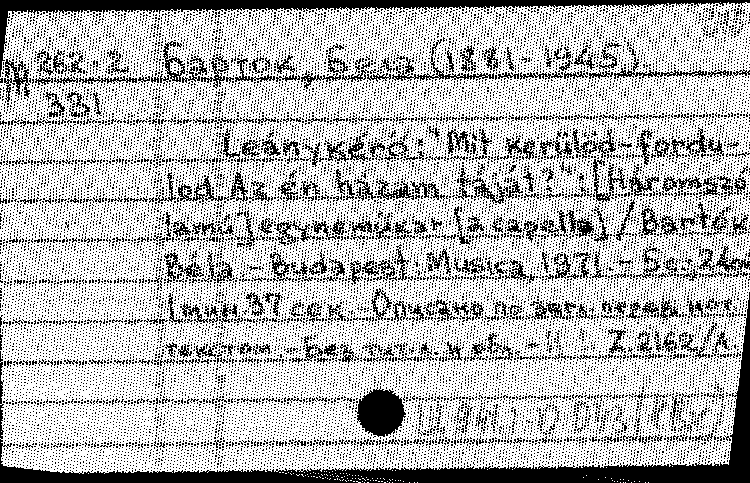 М 262-2 Барток, Бела (1881-1945).
331
Leánykérő: "Mit kerülöd-fordu-
lod Az én házam táját?": [Háromszó
lamú] egyneműkar [a capella] / Bartók
Béla - Budapest: Musica, 1971. - 5 с; 24 см
1 мин 37 сек. Описано по загл. перед нот.
текстом. - Без тит. л. и обл. - Z. 2162/A.